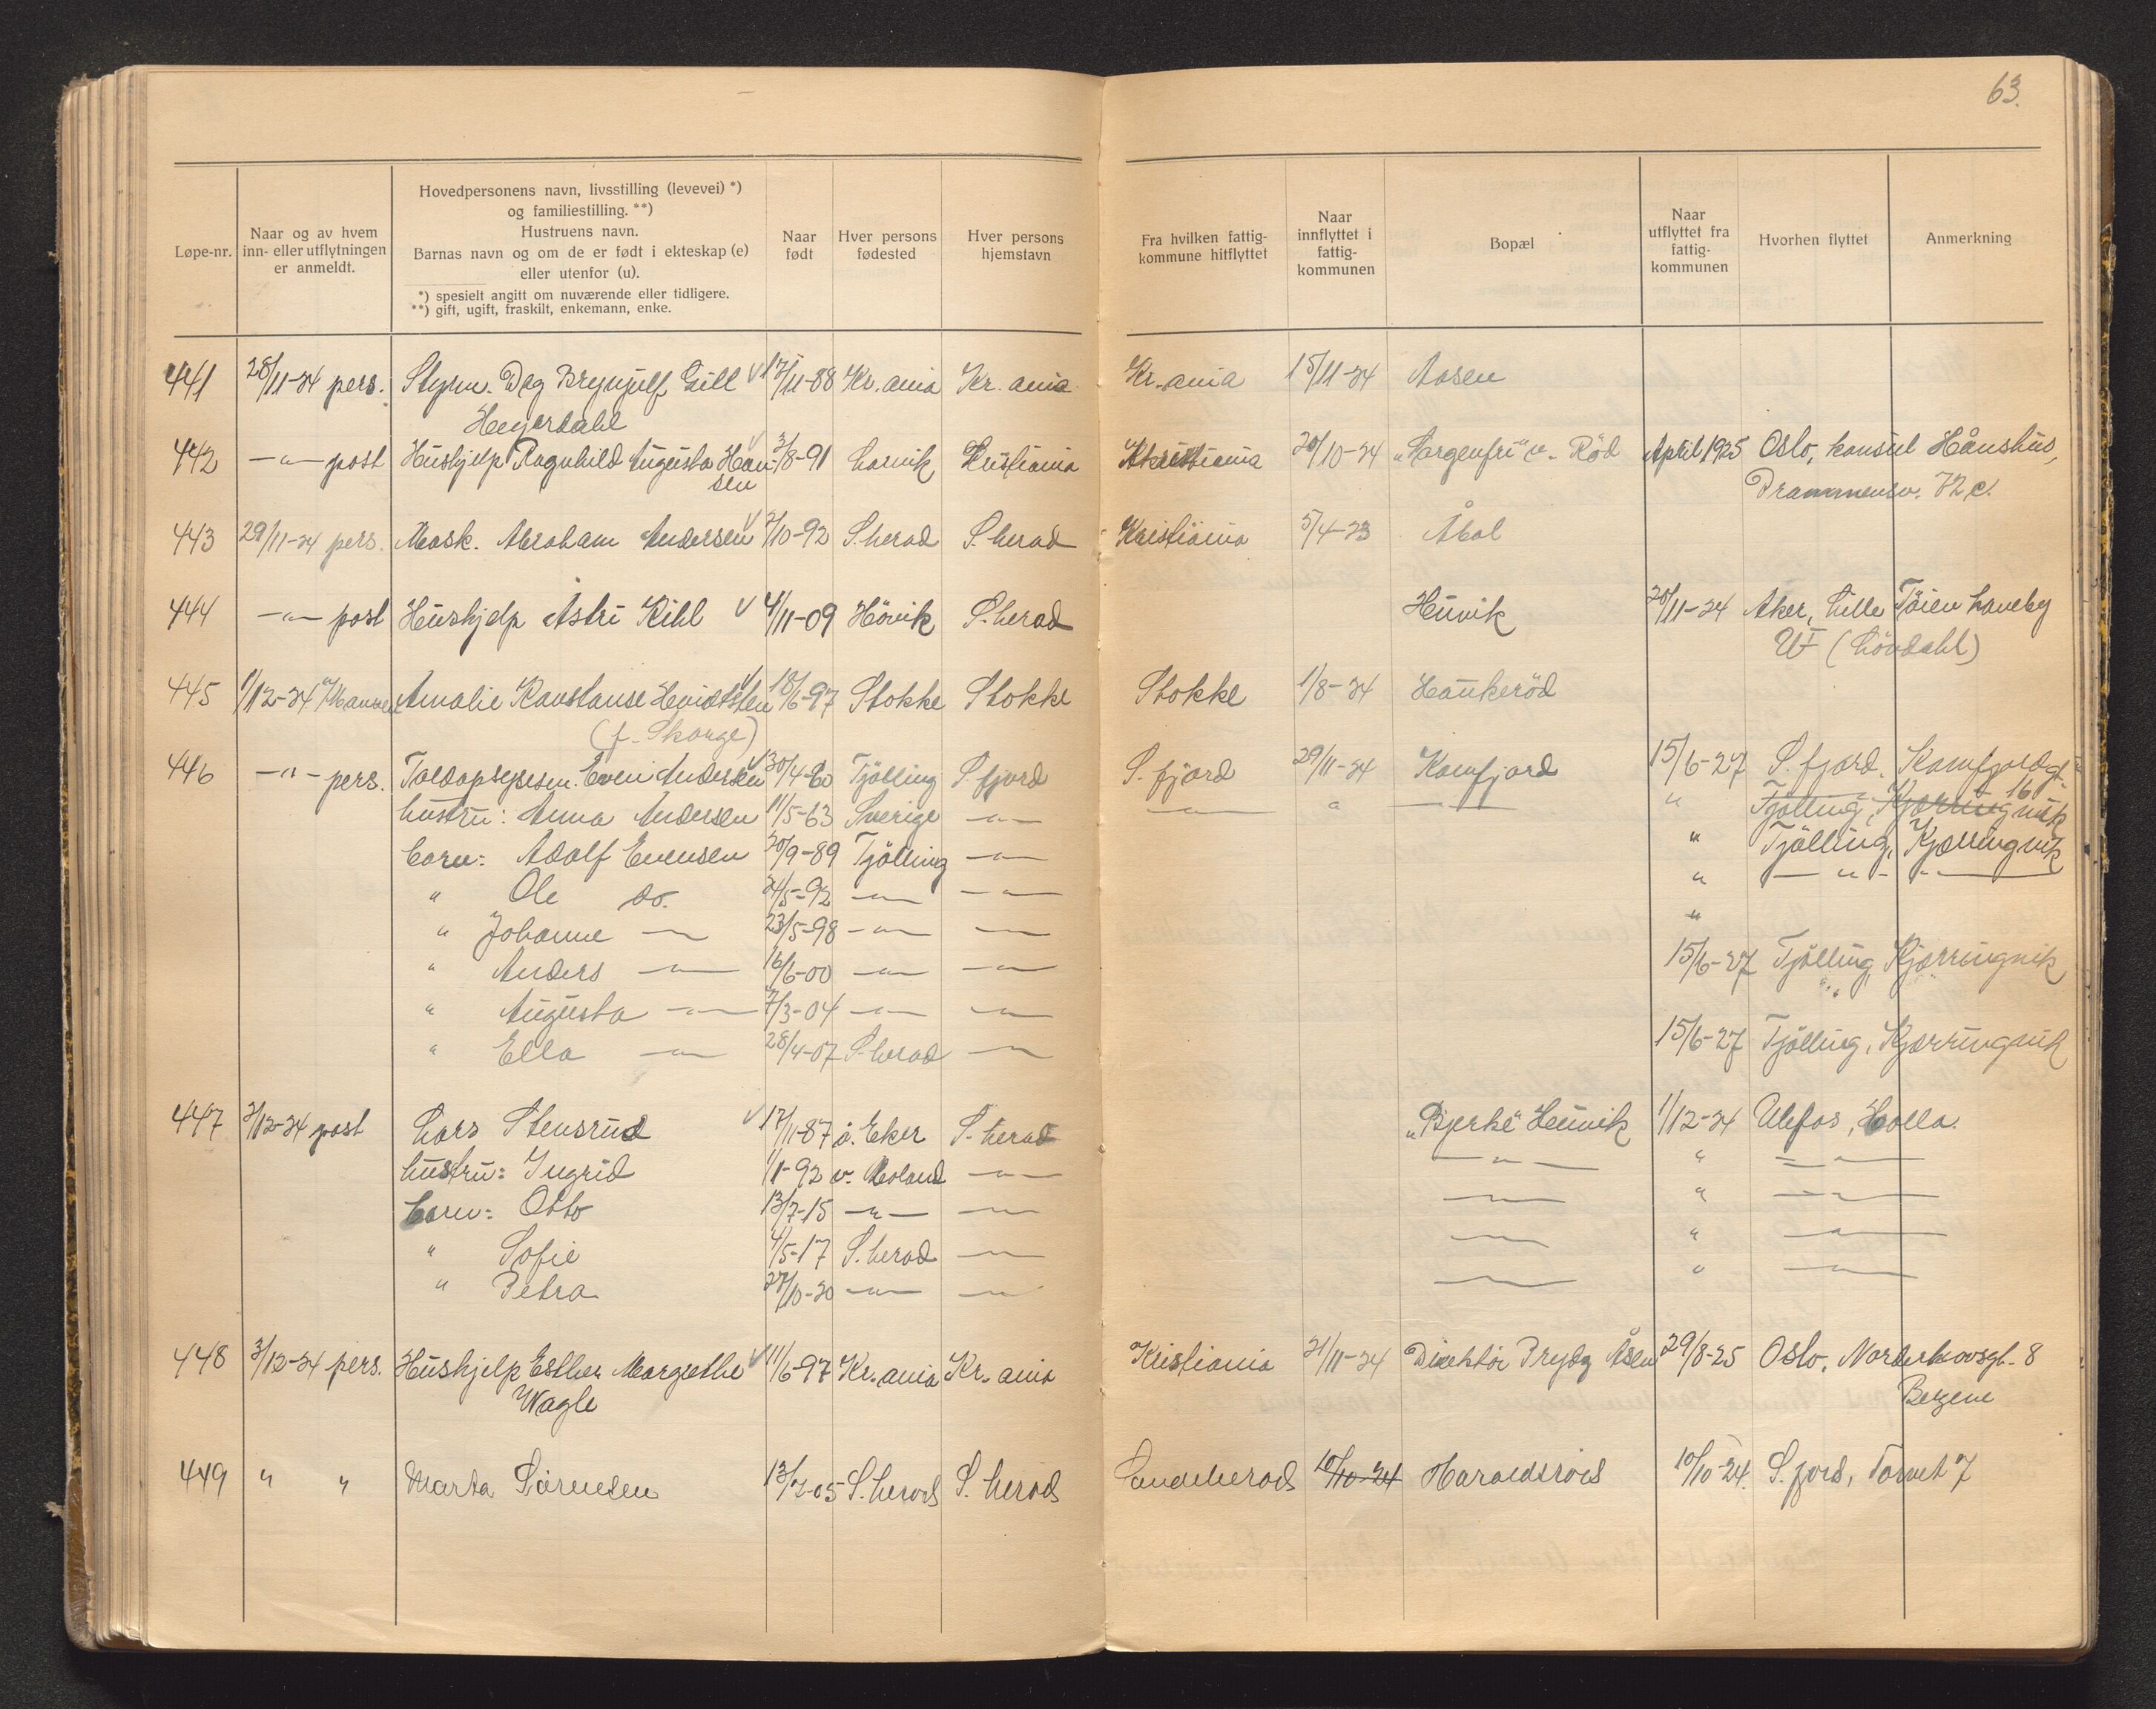 63.
Løpe-nr.
Naar og av hvem
inn- eller utflytningen
er anmeldt.
Hovedpersonens navn, livsstilling (levevei) *)
og familiestilling. **)
Hustruens navn.
Barnas navn og om de er født i ekteskap (e)
eller utenfor (u).
*) spesielt angitt om nuværende eller tidligere.
**) gift, ugift, fraskilt, enkemann, enke.
Naar
født
Hver persons
fødested
Hver persons
hjemstavn
Fra hvilken fattig-
kommune hitflyttet
Naar
innflyttet i
fattig-
kommunen
Bopæl
Naar
utflyttet fra
fattig-
kommunen
Hvorhen flyttet
Anmerkning
441 28/11-24 pers. Styrm. Dag Brynjulf Gill 17/11-88 Kr.ania Kr.ania Kr.ania 15/11-24 Aasen
Heyerdahl
442 -"- post Hushjelp Ragnhild Augusta Han- 3/8-91 Larvik Kristiania Kristiania 20/10-24 "Sorgenfri" v. Röd April 1925 Oslo, konsul Hånshus,
sen Drammensv. 72 c.
443 29/11-24 pers. Mask. Abraham Andersen 2/10-92 S.herad S.herad Kristiania 5/4-23 Åbol
444 -"- post Hushjelp Astri Kihl 4/11-09 Hövik S.herad Hùvik 20/11-24 Aker, Lille Töien haveby
(Lövdahl)
445 1/12-24 Amalie Konstanse 18/6-97 Stokke Stokke Stokke 1/8-24 Haukeröd
(f. Skorge)
446 -"- pers. Even Andersen 30/4-60 Tjölling S.fjord S.fjord 29/11-24 Kamfjord 15/6-27 S.fjord, Kamfjordgt.
16
hustru: Anna Andersen 11/5-63 Sverige -"- -"- " -"- " Tjölling, Kjærringvik
barn: Adolf Evensen 20/9-89 Tjölling -"- " Tjölling, Kjærringvik
" Ole do. 24/5-92 -"- -"- " -"-
" Johanne -"- 23/5-98 -"- -"- "
" Anders -"- 16/6-00 -"- -"- 15/6-27 Tjölling, Kjærringvik
" Augusta -"- 7/3-04 -"- -"-
" Ella -"- 28/4-07 S.herad -"- 15/6-27 Tjölling, Kjærringvik
447 3/12-24 post Lars Stensrud 17/11-87 ö. Eker S.herad "Bjerke" Heimvik 1/12-24 Ulefos, Holla.
hustru: Ingrid 1/1-92 v. Moland -"- -"- " -"-
barn: Otto 13/7-15 -"- -"- -"- " -"-
" Sofie 4/5-17 S.herad -"- -"- " -"-
" Petra 27/10-20 -"- -"- -"- " -"-
448 3/12-24 pers. Hushjelp Esther Margrethe 11/6-97 Kr.ania Kr.ania Kristiania 21/11-24 Direktör Prydz Åsen 29/8-25 Oslo, 8
Wagle
449 " " Marta Sörensen 13/7-05 S.herad S.herad Sandeherad 10/10-24 Haraldsröd 10/10-24. S.fjord, Torvet 7